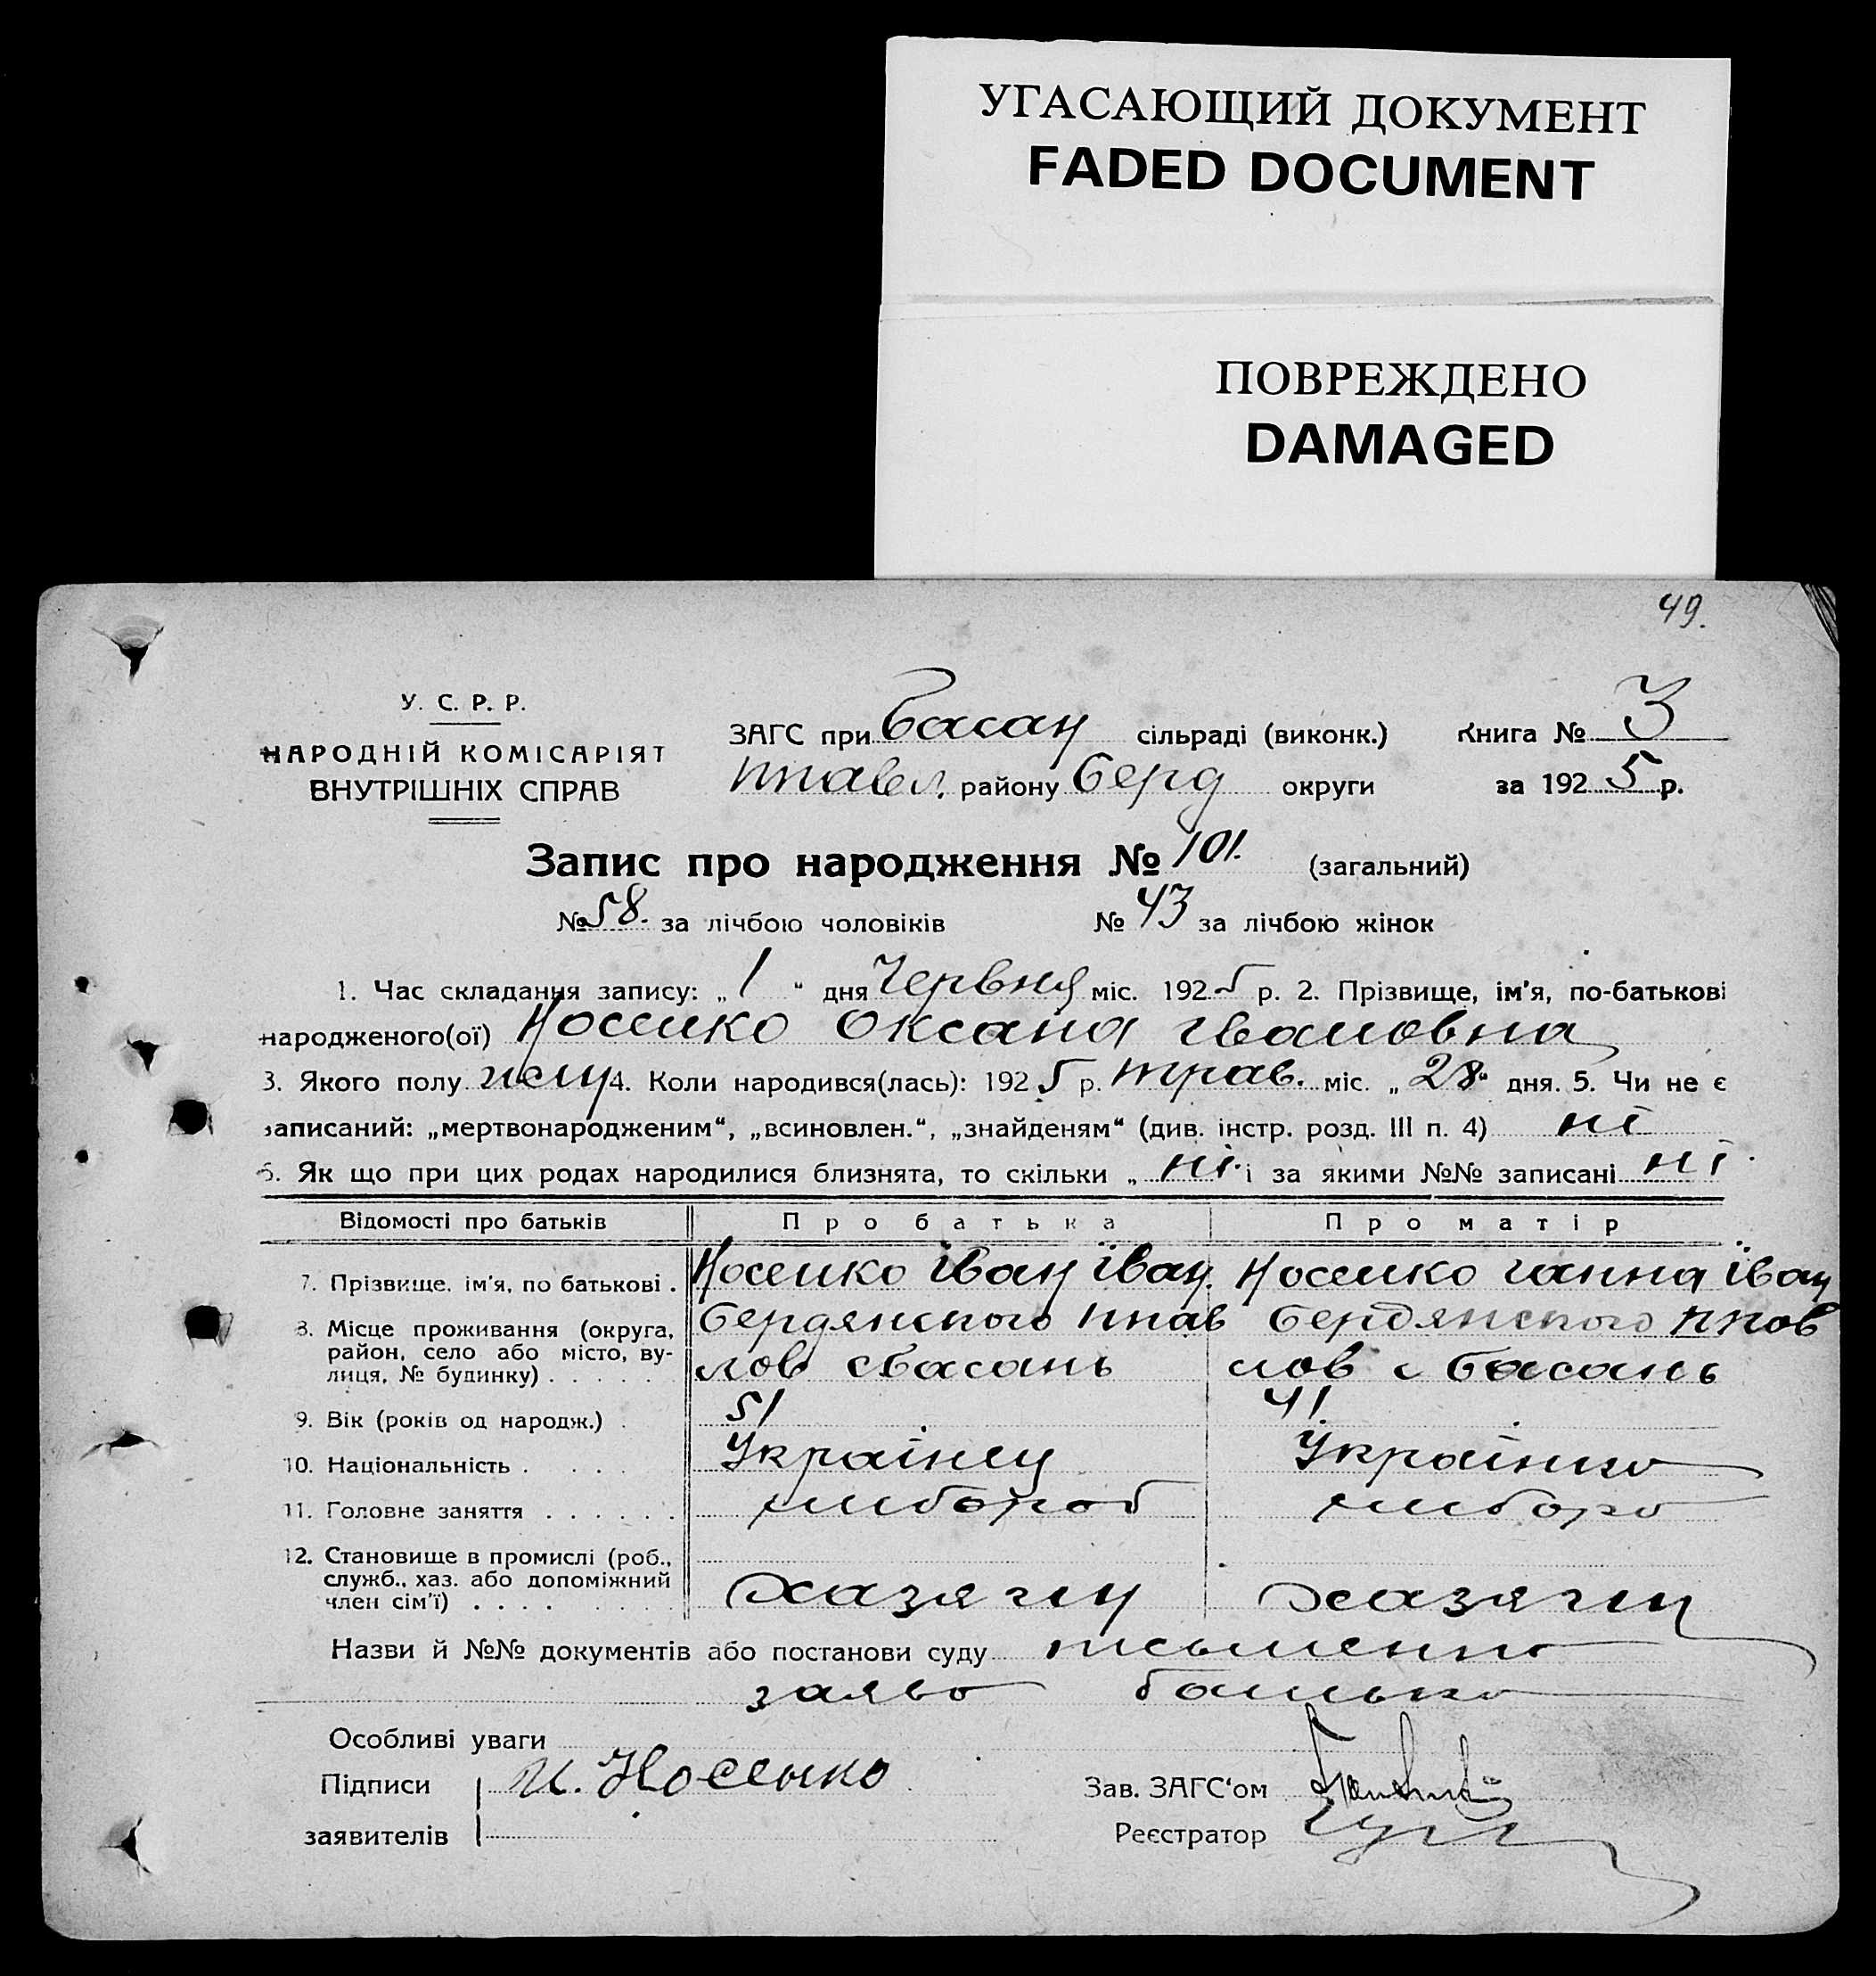 УГАСАЮЩИЙ ДОКУМЕНТ
FADED DOCUMENT
ПОВРЕЖДЕНО
DAMAGED
49.
У. С. Р. Р.
НАРОДНІЙ КОМІСАРІЯТ
ВНУТРІШНІХ СПРАВ
ЗАГС при Басан сільраді (виконк.) Книга № 3
Павл. району Берд округи за 1925 р.
Запис про народження № 101. (загальний)
№ 58. за лічбою чоловіків № 43 за лічбою жінок
1. Час складання запису: „ 1 “ дня Червня міс. 1925 р. 2. Прізвище, ім'я, по-батькові
народженого(ої) Носенко Оксана Івановна
3. Якого полу жен 4. Коли народився(лась): 1925 р. трав. міс. „ 28 “ дня. 5. Чи не є
записаний: „мертвонародженим“, „всиновлен.“, „знайденям“ (див. інстр. розд. III п. 4) ні
6. Як що при цих родах народилися близнята, то скільки „ ні. і за якими №№ записані ні.
Відомості про батьків Про батька Про матір
7. Прізвище, ім'я, по батькові . Носенко Іван Іван. Носенко Ганна Іван
8. Місце проживання (округа, Бердянского Пав Бердянского Пов
район, село або місто, ву- лов с Басань лов с Басань
лиця, № будинку) . . . . .
9. Вік (років од народж.) . 51 41.
10. Національність . . . . Українец Українка
11. Головне заняття . . . . . . хлібороб хлібороб
12. Становище в промислі (роб.,
служб., хаз. або допоміжний хазяїн хазяїн
член сім'ї) . . . .
Назви й №№ документів або постанови суду письменна
заява батька
Особливі уваги
Підписи И. Носенко Зав. ЗАГС'ом
заявителів Реєстратор